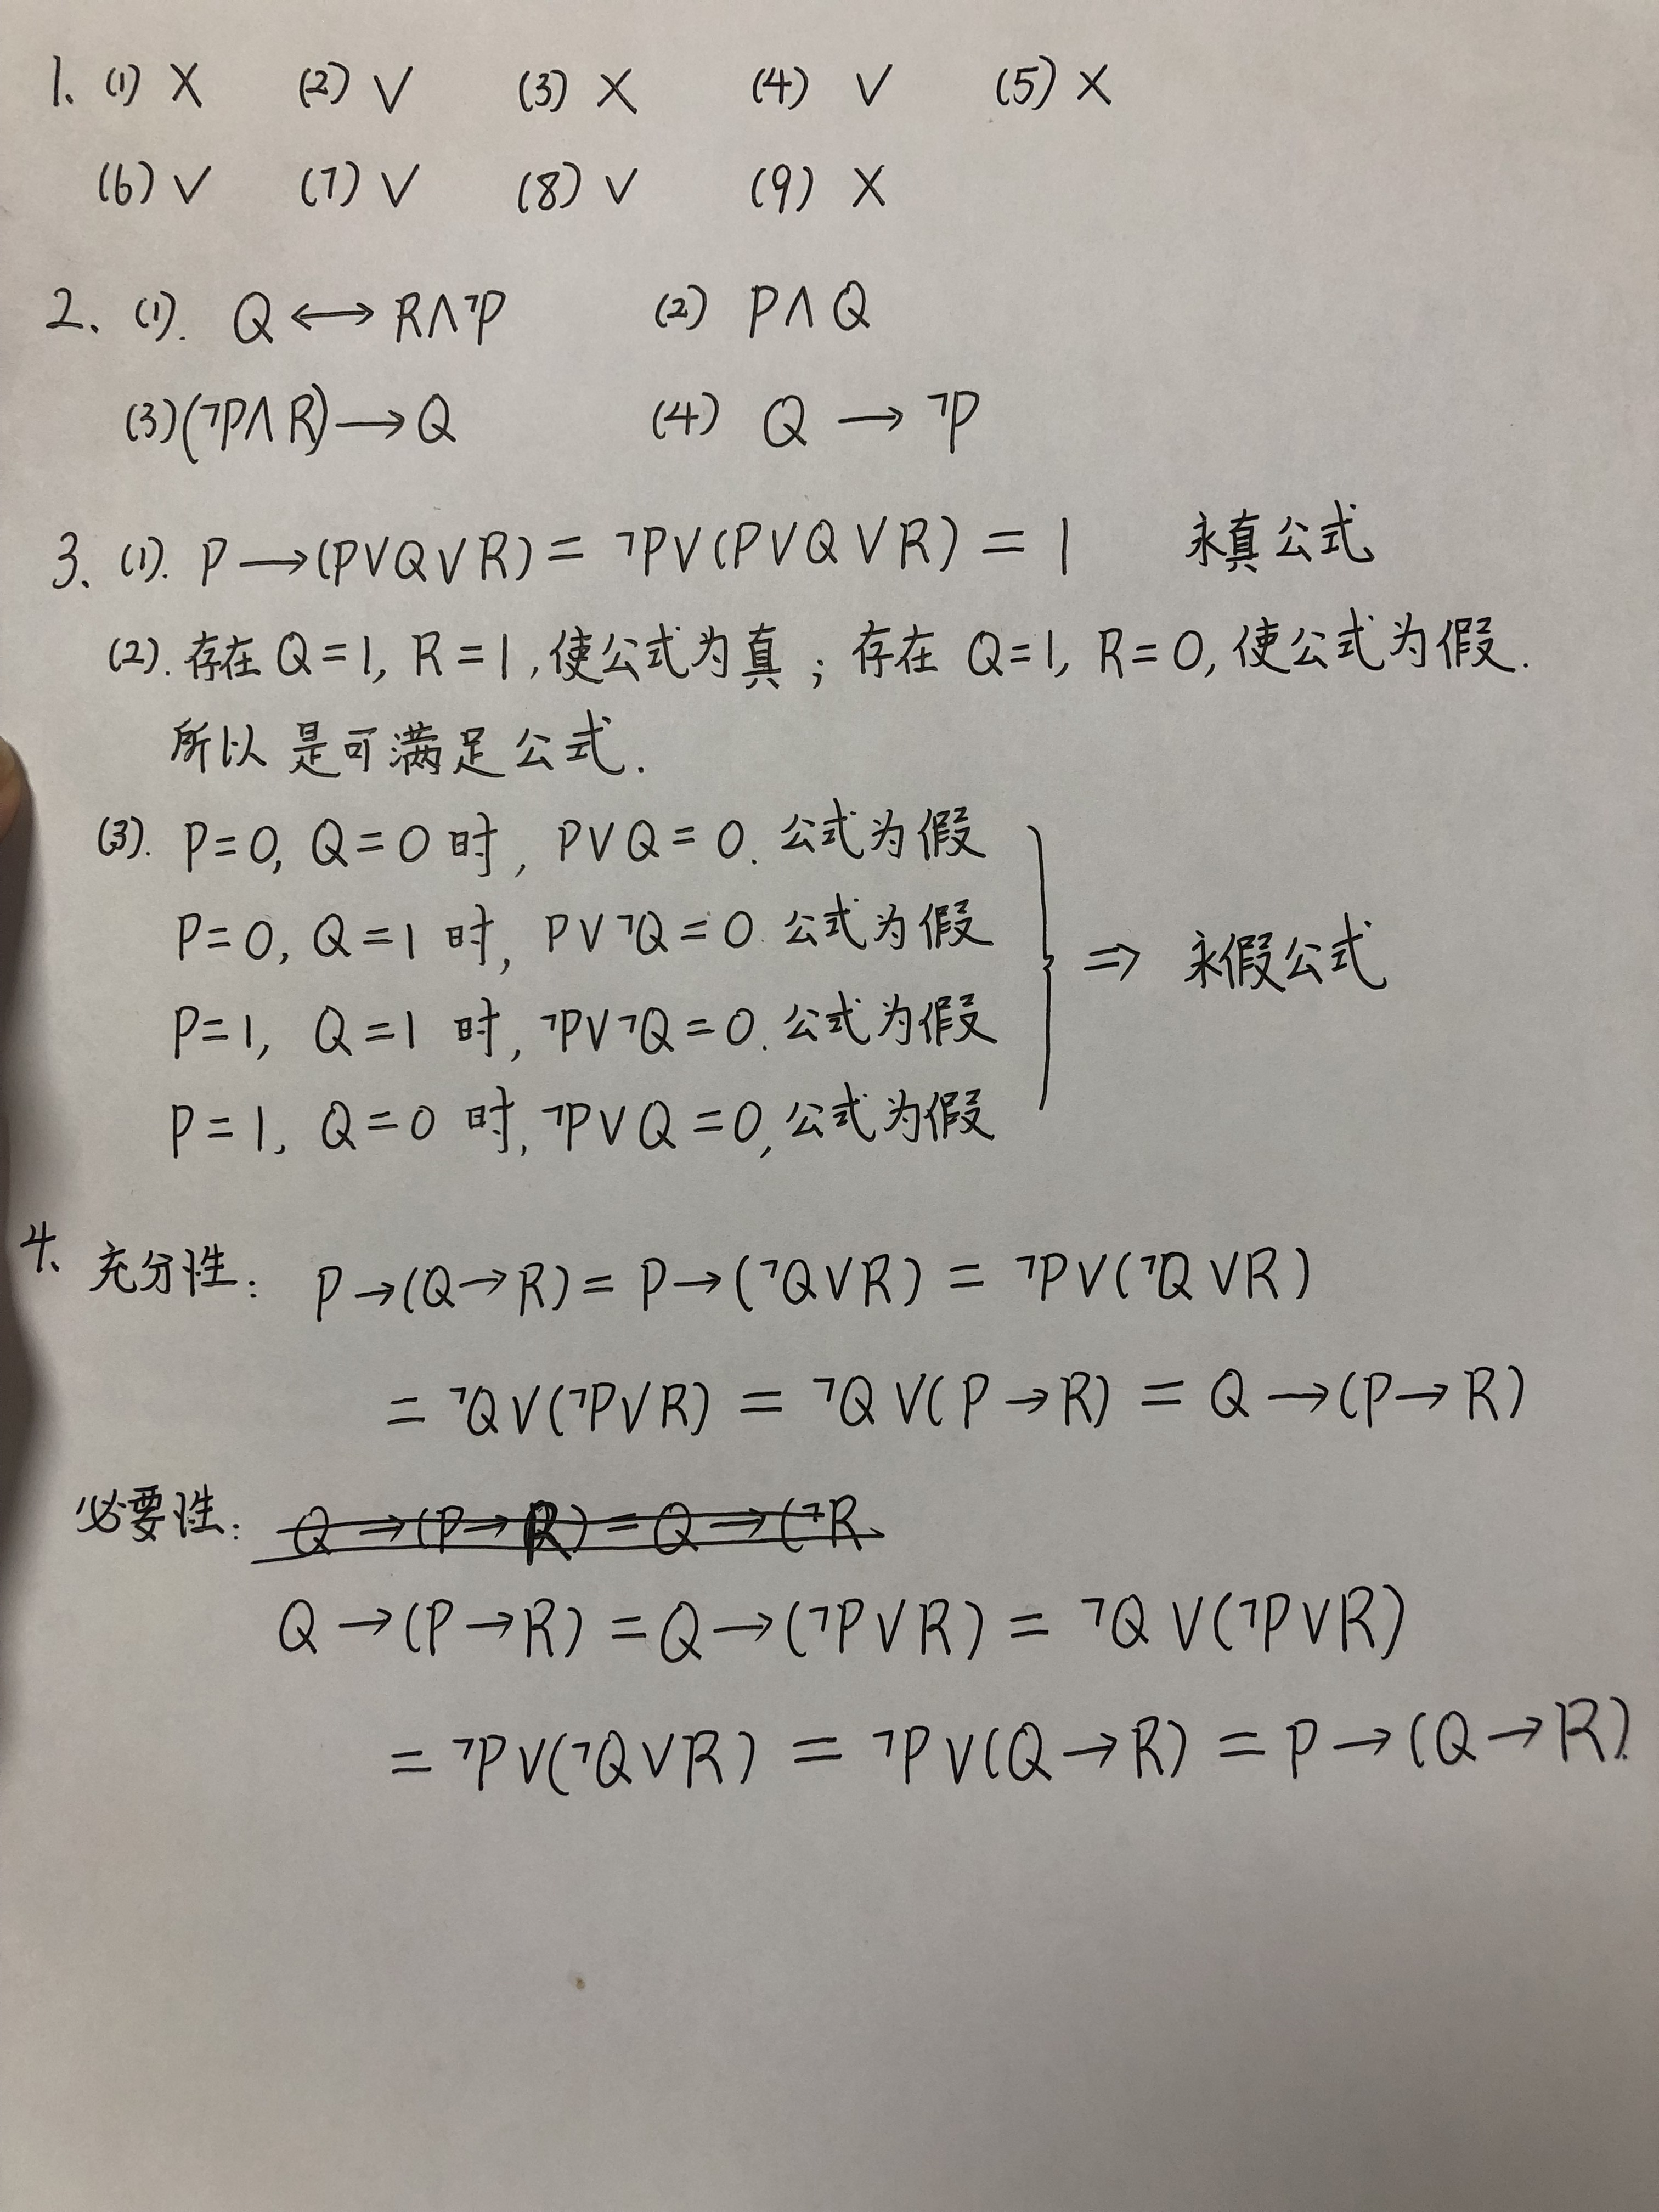 1. (1) X (2) V (3) X (4) V (5) X
(6) V (7) V (8) V (9) X
2. (1). Q ⟷ R∧¬P (2) P∧Q
(3)(¬P∧R)⟶Q (4) Q ⟶ ¬P
3. (1). P⟶(P∨Q∨R) = ¬P∨(P∨Q∨R) = 1 永真公式
(2). 存在 Q=1, R=1, 使公式为真; 存在 Q=1, R=0, 使公式为假.
所以是可满足公式.
(3). P=0, Q=0 时, P∨Q=0. 公式为假
P=0, Q=1 时, P∨¬Q=0. 公式为假
⇒ 永假公式
P=1, Q=1 时, ¬P∨¬Q=0. 公式为假
P=1, Q=0 时, ¬P∨Q=0, 公式为假
4. 充分性: P→(Q→R) = P→(¬Q∨R) = ¬P∨(¬Q∨R)
= ¬Q∨(¬P∨R) = ¬Q∨(P→R) = Q→(P→R)
必要性: Q→(P→R)=Q→(¬R
Q→(P→R) = Q→(¬P∨R) = ¬Q∨(¬P∨R)
= ¬P∨(¬Q∨R) = ¬P∨(Q→R) = P→(Q→R).